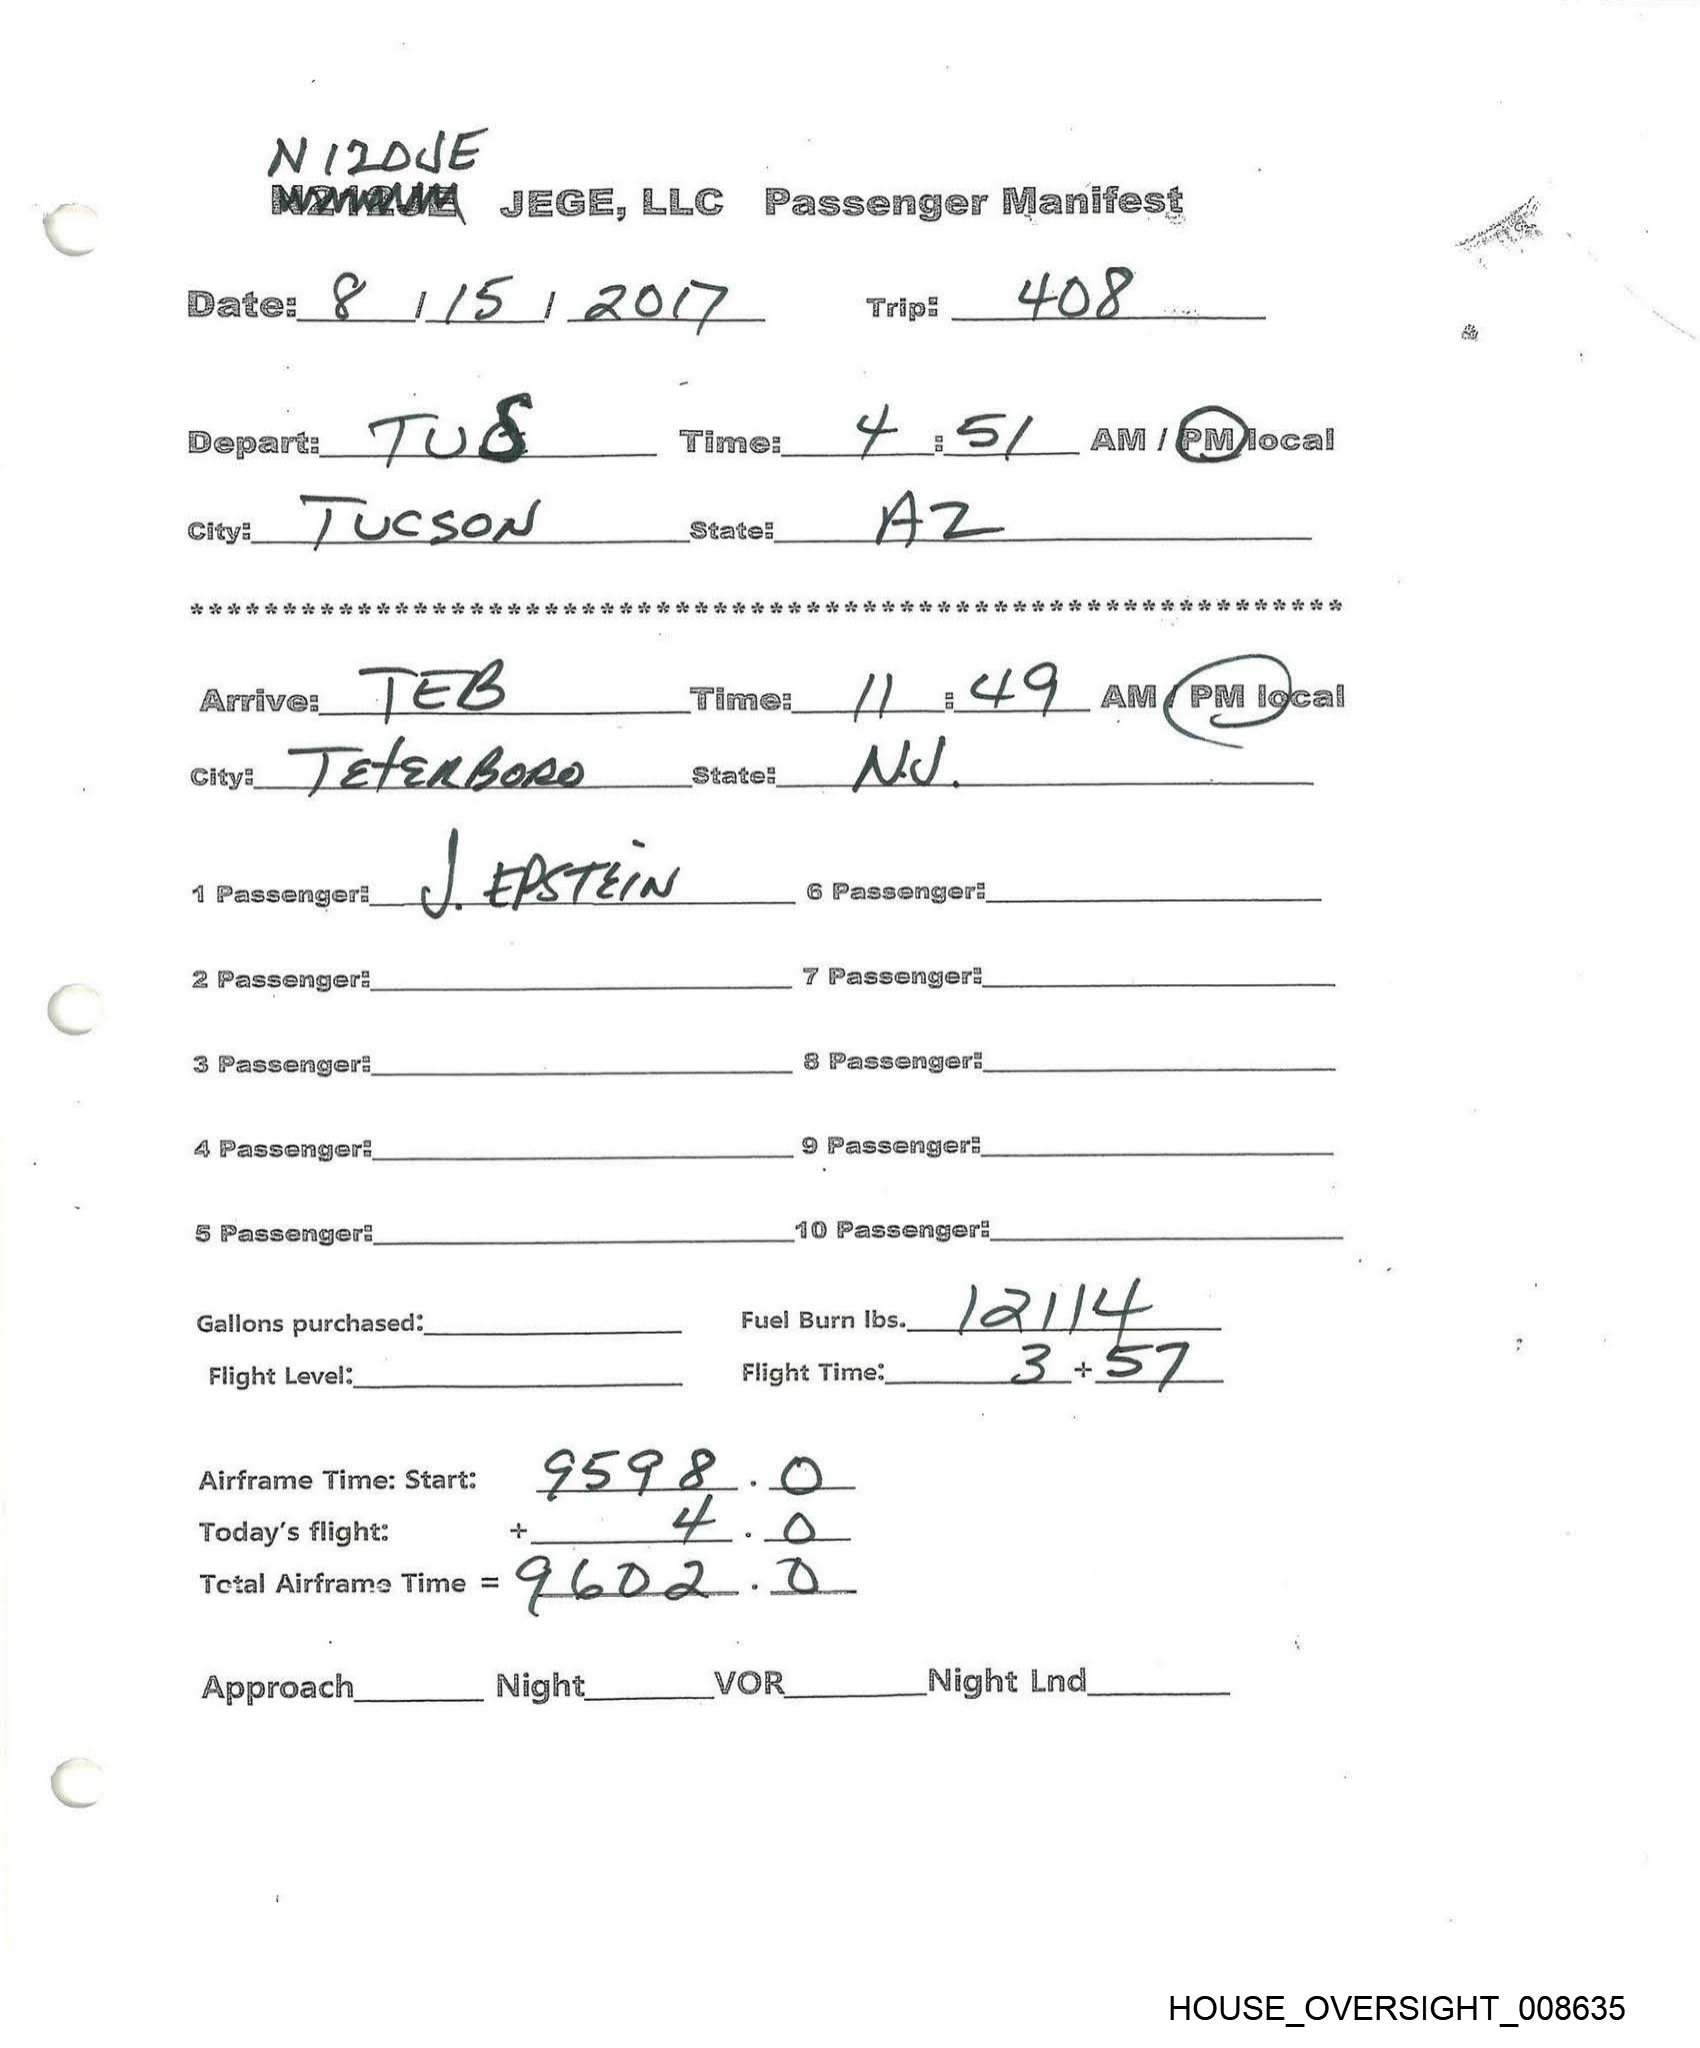 N120JE
N212JE JEGE, LLC Passenger Manifest
Date: 8 / 15 / 2017 Trip: 408
Depart: TUS Time: 4 : 51 AM / PM local
City: TUCSON State: AZ
****************************************************************
Arrive: TEB Time: 11 : 49 AM / PM local
City: TETERBORO State: N.J.
1 Passenger: J. EPSTEIN 6 Passenger:
2 Passenger: 7 Passenger:
3 Passenger: 8 Passenger:
4 Passenger: 9 Passenger:
5 Passenger: 10 Passenger:
Gallons purchased: Fuel Burn lbs. 12114
Flight Level: Flight Time: 3 + 57
Airframe Time: Start: 9598 . 0
Today's flight: + 4 . 0
Total Airframe Time = 9602 . 0
Approach Night VOR Night Lnd
HOUSE_OVERSIGHT_008635